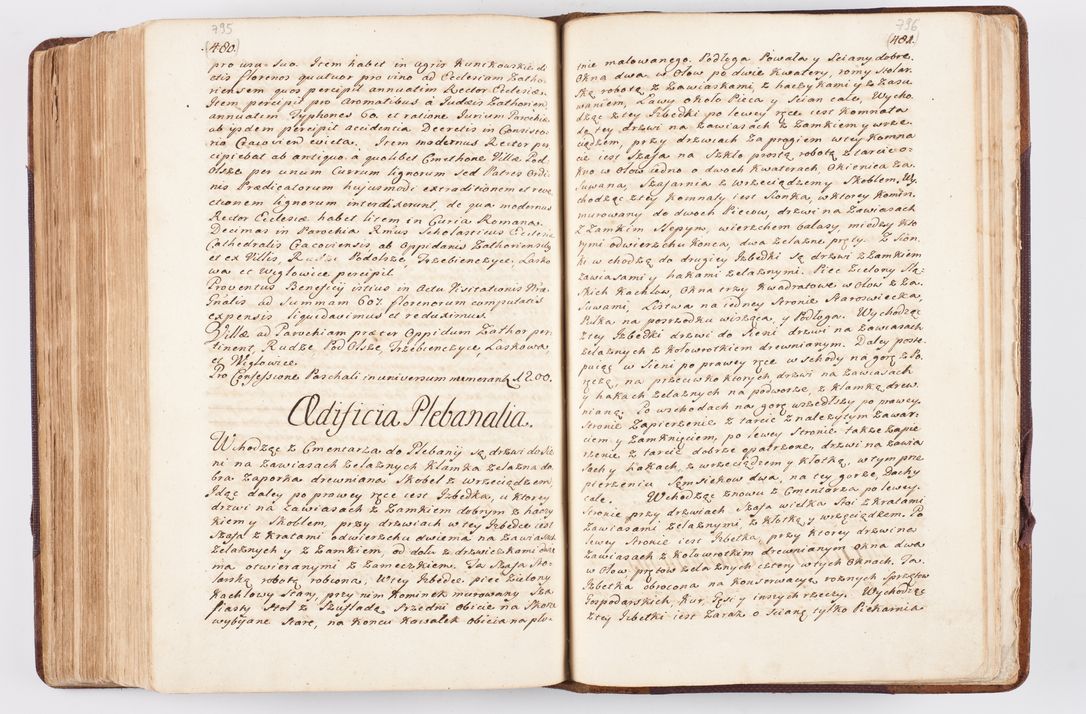 795
(480.)
pro usu suo. Item habet in agris Kunickowskie di
ctis florenos quatuor pro vino ad Ecclesiam Zatho-
riensem quos percipit annuatim Rector Ecclesiæ.
Item percipit pro aromatibus à Judæis Zathorien
annuatim Typhones 60. et ratione Jurium Parochia
ab ijsdem percipit accidentia Decretis in Consisto-
rio Cracovien evicta. Item modernus Rector per
cipiebat ab antiquo a quolibet Cmethone Villæ Pod
Olsza per unum Currum lignorum sed Patres Ordi
nis Prædicatorum hujusmodi extraditionem et reve
ctionem lignorum interdixerunt, de qua modernus
Rector Ecclesiæ habet litem in Curia Romana.
Decimas in Parochia Rmus Scholasticus Ecclesiæ
Cathedralis Cracoviensis, ab Oppidanis Zathoriensibus
et ex Villis, Rudze Podolsze, Trzebienczyce, Lasko
wa et Wiglowice percipit.
Proventus Beneficij istius in Actu Visitationis Ori
ginalis ad Summam 607. florenorum computatis
expensis liquidavimus et reduximus.
Villæ ad Parochiam præter Oppidum Zathor per
tinent, Rudze Pod Olsze, Trzebienczyce, Laskowa,
et Wiglowice.
Pro Confessione Paschali in universum numerantur 1200.
Ædificia Plebanalia.
Wchodząc z Cmentarza do Plebany są drzwi do Sie
ni na zawiasach żelaznych Klamka żelazna do
bra Zaporka drewniana Skobel z wrzeciądzem,
Idąc daley po prawey ręce iest Izbedka, u ktorey
drzwi na zawiasach z Zamkiem dobrym z haczy
kiem y Skoblem, przy drzwiach w tey Izbedce iest
Szafa z Kratami odwierzchu dwiema na Zawiasach
żelaznych y z Zamkiem, od dołu z drzwiczkami dwie
ma otwieranymi z Zameczkiem. Ta Szafa Sto-
larską robotą robiona, W tey Izbedce piec zielony
Kachlowy Stary, przy nim Kominek murowany Sza
fiasty Stol z Szufladą Srzedni obicie na Skorze
wybijane Stare, na Koncu Kawałek obicia na płu-

796
(481.)
tnie malowanego. Podłoga Powała y Sciany dobre.
Okna dwa w Ołow po dwie Kwatery, ramy Stolar.
ską robotą z Zawiaskami, z haczykami y z Zasu
waniem, Ławy około Pieca y Scian całe, Wycho.
dząc z tey Izbedki po lewey ręce iest Komnata
do tey drzwi na zawiasach z Zamkiem y wrze
ciądzem, przy drzwiach za progiem w tey Komna
cie iest Szafa na Szkło prostą robotą z tarcic o-
kno w Ołow iedno o dwoch Kwaterach, Okienica Za.
suwana, Szafarnia z wrzeciądzem y Skoblem, Wy
chodząc z tey Komnaty iest Sionka, w ktorey Komin
murowany do dwoch Piecow, drzwi na zawiasach
z Zamkim Slepym, wierzchem balasy, między kto
rymi odwierzchu Konca, dwa żelazne pręty. Z Sion
ki wchodzą do drugiey Izbedki są drzwi z Zamkiem
zawiasami y hakami żelaznymi. Piec zielony Slą.
skich Kachlow, Okna trzy Kwadratowe w Ołow z Za.
suwami, Listwa na iedney Stronie Staroswiecka,
Pułka na posrzodku wisząca, y Podłoga. Wychodząc
z tey Izbedki drzwi do Sieni drzwi na zawiasach
żelaznych z Kołowrotkiem drewnianym. Daley poste.
puiąc w Sieni po prawey ręce w schody na gorę z Po.
ręczą, na przeciwko ktorych drzwi na zawiasach
y hakach żelaznych na podworze, z Klamką drew.
nianą. Po wschodach na gorę wszedłszy po prawey.
Stronie Zapierzenie z tarcic z należytym zawar.
ciem y zamknięciem, po lewey Stronie także zapie
rzenie z tarcic dobrze opatrzone, drzwi na zawia
sach y hakach, z wrzeciądzem y Kłotką, w tym prze
pierzeniu Sąmsiekow dwa, na tey gorze, Dachy
całe. Wchodząc znowu z Cmentorza po lewey.
Stronie przy drzwiach, Szafa wielka Stoi z Kratami
zawiasami żelaznymi, z Kłotką y wrzeciądzem. Po
lewey Stronie iest Izbetka, przy ktorey drzwi na
zawiasach z Kołowrotkiem drewnianym. Okna dwa
w Ołow, prętow żelaznych cztery w tych Oknach. Ta
Izbetka obrocona na Konserwacyą rożnych Sprzętow
Gospodarskich, Kur, Gęsi y innych rzeczy. Wychodząc
z tey Izbetki iest zaraz o Scianę tylko Piekarnia